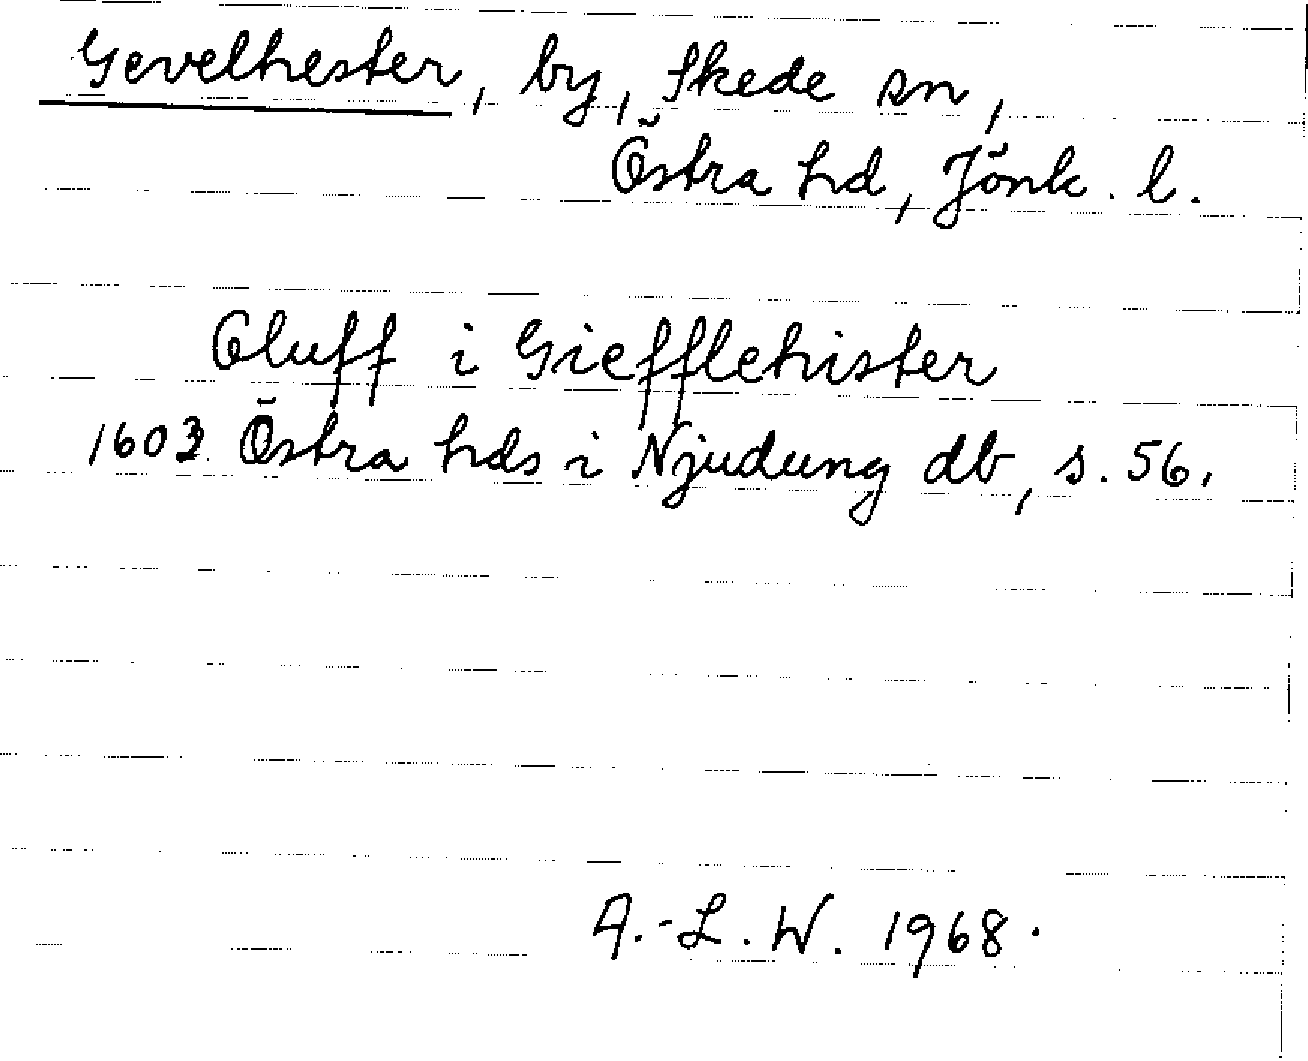 Gevelhester, by, Skede sn,
Östra hd, Jönk. l.
Oluff i Giefflehister
1603 Östra hds i Njudung db, s. 56.
A.-L. W. 1968.